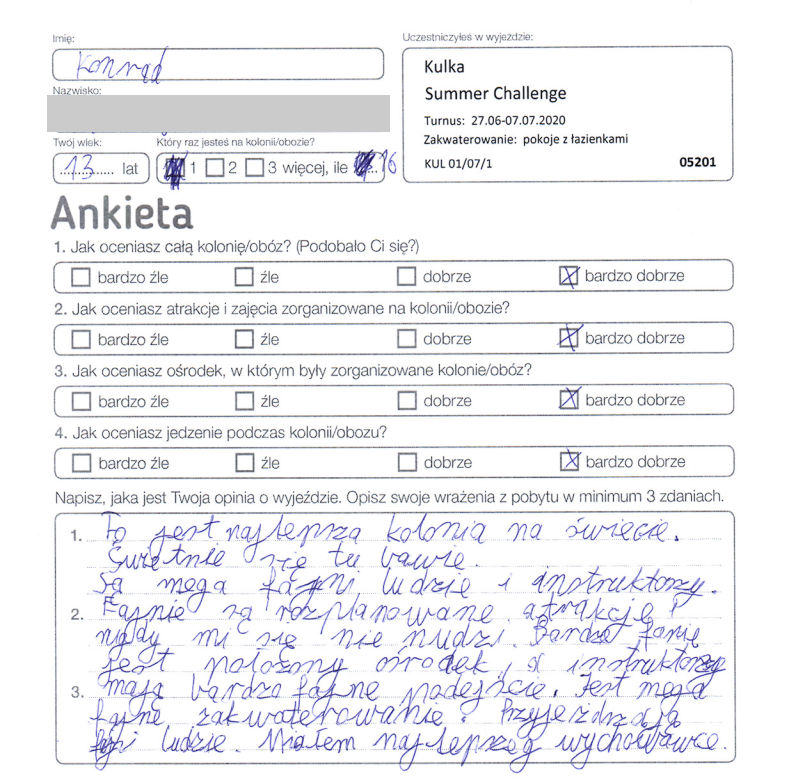 Imię:
Konrad
Nazwisko:
Twój wiek:
13 lat
Który raz jesteś na kolonii/obozie?
1 2 3 więcej, ile 16
Uczestniczyłeś w wyjeździe:
Kulka
Summer Challenge
Turnus: 27.06-07.07.2020
Zakwaterowanie: pokoje z łazienkami
KUL 01/07/1 05201
Ankieta
1. Jak oceniasz całą kolonię/obóz? (Podobało Ci się?)
bardzo źle źle dobrze bardzo dobrze
2. Jak oceniasz atrakcje i zajęcia zorganizowane na kolonii/obozie?
bardzo źle źle dobrze bardzo dobrze
3. Jak oceniasz ośrodek, w którym były zorganizowane kolonie/obóz?
bardzo źle źle dobrze bardzo dobrze
4. Jak oceniasz jedzenie podczas kolonii/obozu?
bardzo źle źle dobrze bardzo dobrze
Napisz, jaka jest Twoja opinia o wyjeździe. Opisz swoje wrażenia z pobytu w minimum 3 zdaniach.
1. To jest najlepsza kolonia na świecie.
Świetnie się tu bawię.
Są mega fajni ludzie i instruktorzy.
2. Fajnie są rozplanowane atrakcje i
nigdy mi się nie nudzi. Bardzo fajnie
jest położony ośrodek, a instruktorzy
3. mają bardzo fajne podejście. Jest mega
fajne zakwaterowanie. Przyjeżdzają
ludzie. Miałem najlepszeg wychowawce.